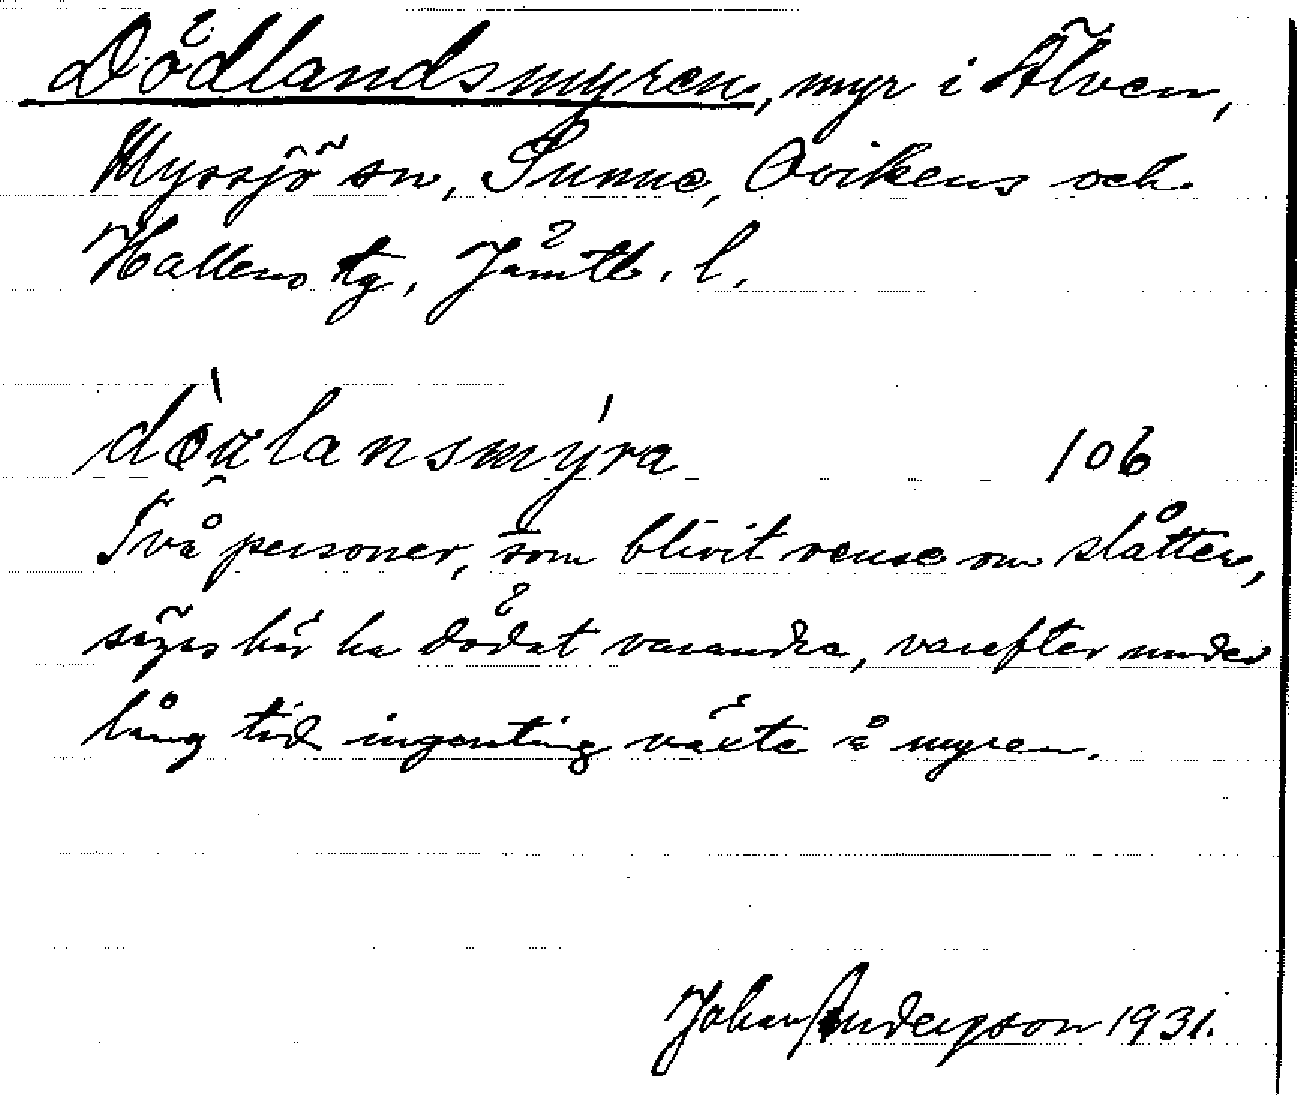 Dödlandsmyren, myr i Älven,
Myssjö sn, Sunne, Ovikens och
Hallens tg, Jämtl. l.
dö̀ɴlansmýra 106
Två personer, som blivit rense om slåtter,
säges här ha dödat varandra, varefter under
lång tid ingenting växte å myren.
Johan Anderzson 1931.